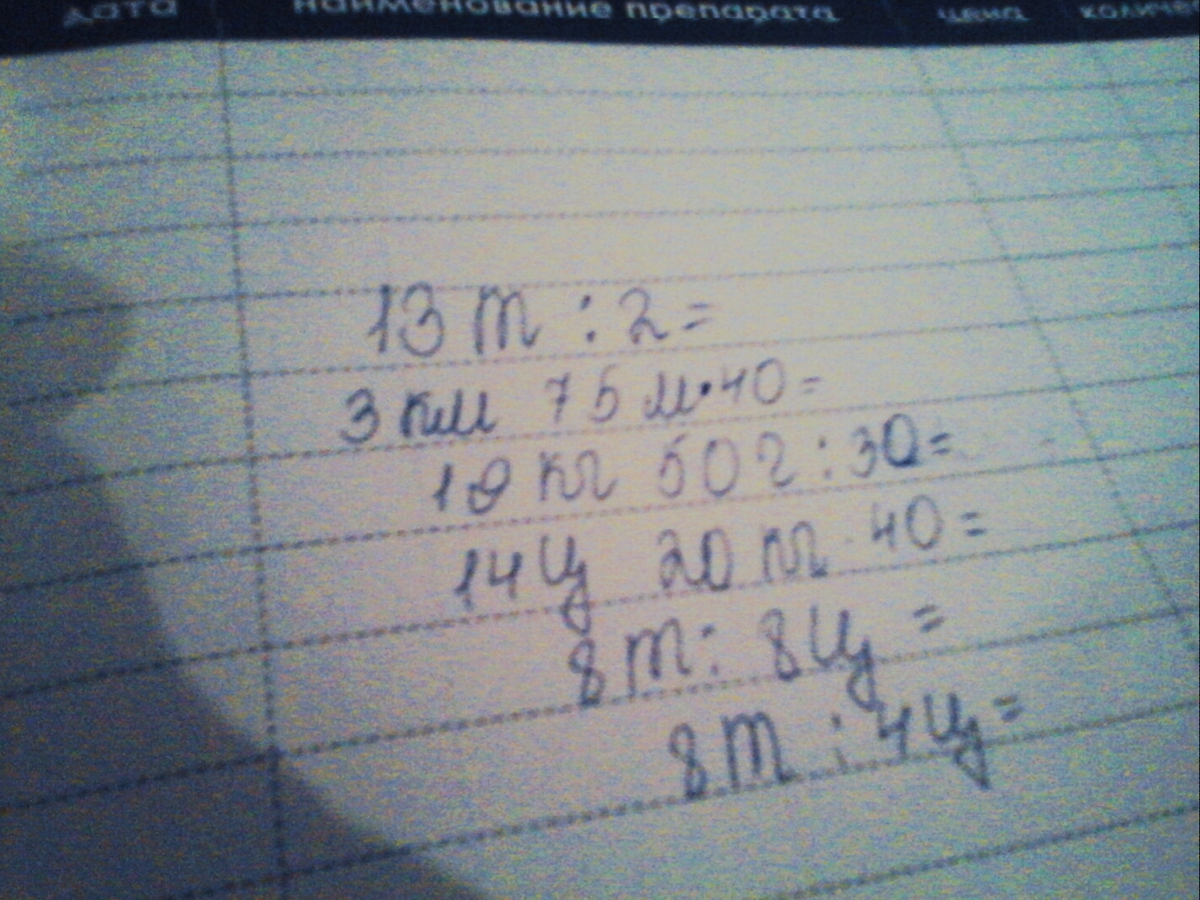 дата наименование препарата цена количе
13 т : 2 =
3 км 75 м · 40 =
18 кг 50 г : 30 =
14 ц 20 кг · 40 =
8 т : 8 ц =
8 т : 4 ц =